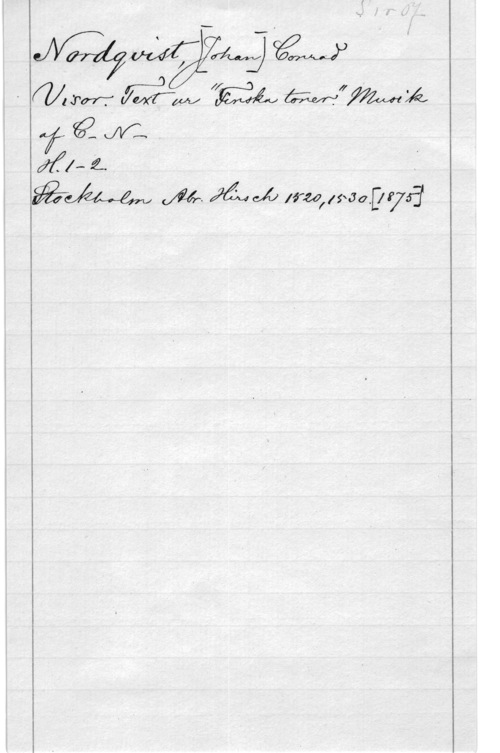 S 1 r 07
Nordqvist, [Johan] Conrad
Visor. Text ur "Finska toner." Musik
af C- N-
H. 1-2
Stockholm Abr. Hirsch 1520, 1530. [1875]